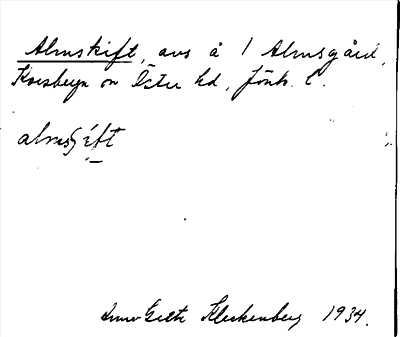 Almskift, avs å 1 Almsgård,
Korsberga sn Östra hd, Jönk. l.
almsʃéft
Anna-Greta Kleckenberg 1934.